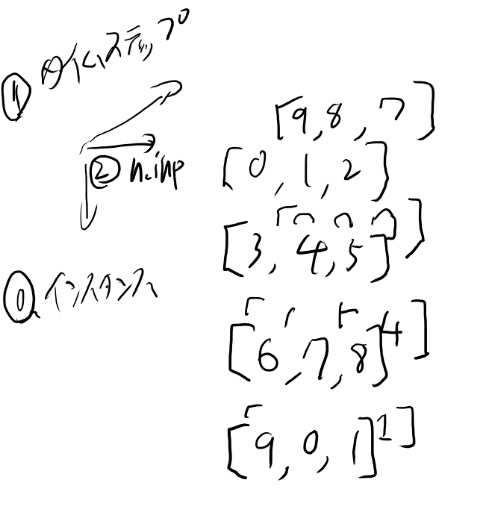 ① タイムステップ
② n_inp
⓪ インスタンス
[9,8,7]
[0,1,2]
[3,4,5]
[6,7,8] 4]
[9,0,1] 1]